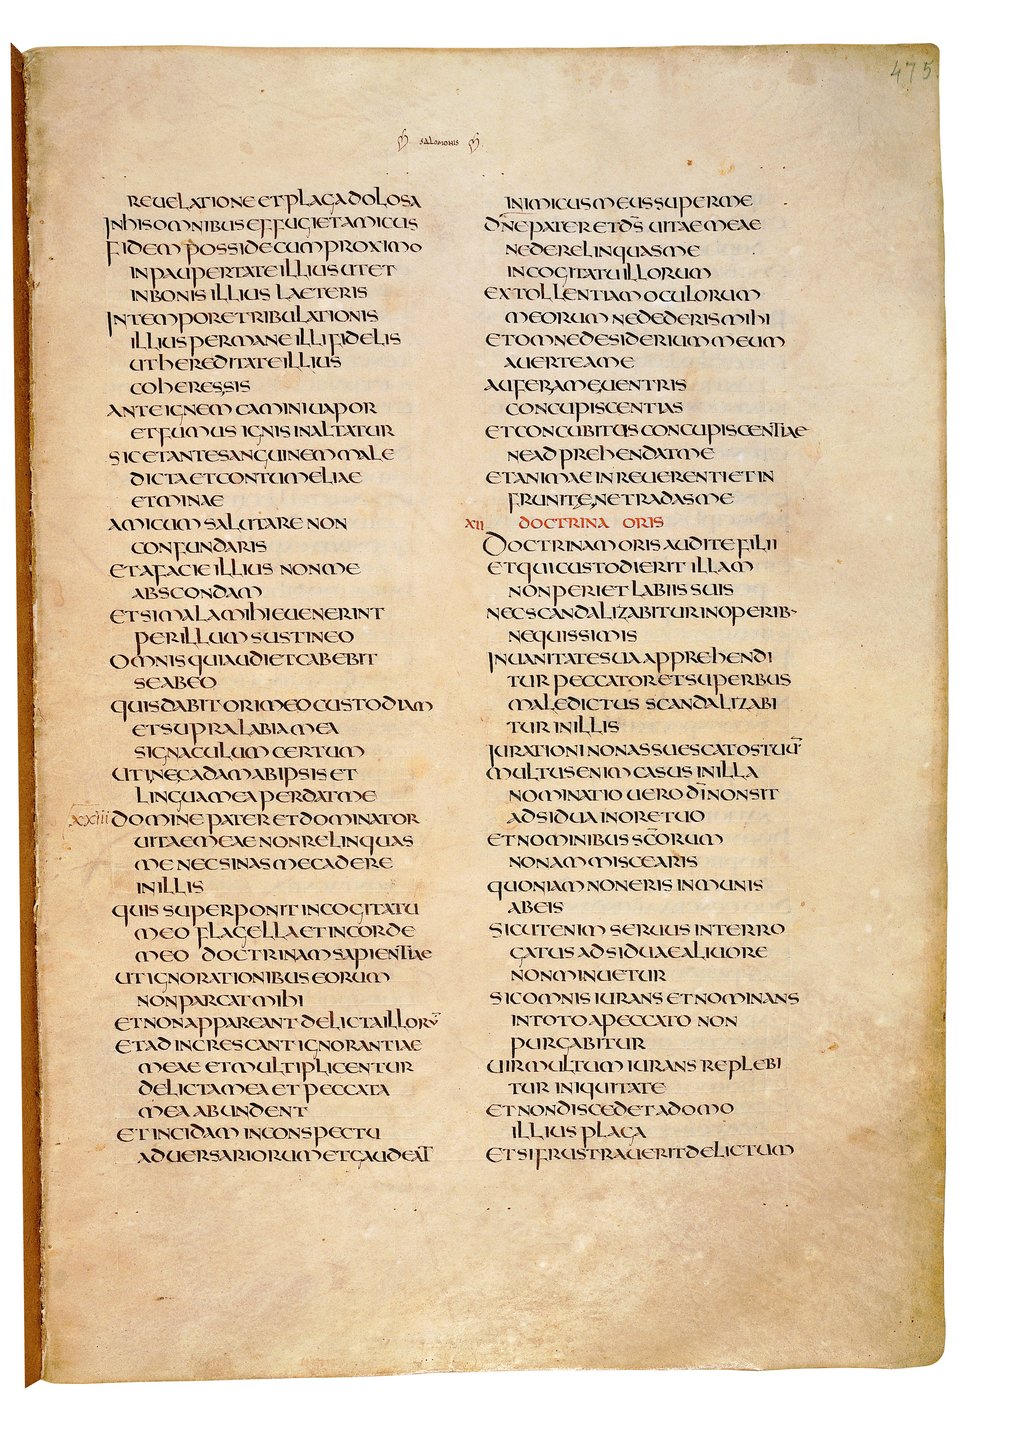 475
SALOMONIS
REUELATIONE ET PLAGA DOLOSA
IN HIS OMNIBUS EFFUGIET AMICUS
FIDEM POSSIDE CUM PROXIMO
IN PAUPERTATE ILLIUS UTET
IN BONIS ILLIUS LAETERIS
IN TEMPORE TRIBULATIONIS
ILLIUS PERMANE ILLI FIDELIS
UT HEREDITATE ILLIUS
COHERES SIS
ANTE IGNEM CAMINI UAPOR
ET FUMUS IGNIS INALTATUR
SIC ET ANTE SANGUINEM MALE
DICTA ET CONTUMELIAE
ET MINAE
AMICUM SALUTARE NON
CONFUNDARIS
ET A FACIE ILLIUS NON ME
ABSCONDAM
ET SI MALA MIHI EUENERINT
PER ILLUM SUSTINEO
OMNIS QUI AUDIET CABEBIT
SE AB EO
QUIS DABIT ORI MEO CUSTODIAM
ET SUPRA LABIA MEA
SIGNACULUM CERTUM
UTI NE CADAM AB IPSIS ET
LINGUA MEA PERDAT ME
XXIII DOMINE PATER ET DOMINATOR
UITAE MEAE NON RELINQUAS
ME NEC SINAS ME CADERE
IN ILLIS
QUIS SUPERPONIT IN COGITATU
MEO FLAGELLA ET IN CORDE
MEO DOCTRINAM SAPIENTIAE
UT IGNORATIONIBUS EORUM
NON PARCAT MIHI
ET NON APPAREANT DELICTA ILLORŪ
ET ADINCRESCANT IGNORANTIAE
MEAE ET MULTIPLICENTUR
DELICTA MEA ET PECCATA
MEA ABUNDENT
ET INCIDAM IN CONSPECTU
ADUERSARIORUM ET GAUDEAT
INIMICUS MEUS SUPER ME
DNE PATER ET DS UITAE MEAE
NE DERELINQUAS ME
IN COGITATU ILLORUM
EXTOLLENTIAM OCULORUM
MEORUM NE DEDERIS MIHI
ET OMNE DESIDERIUM MEUM
AUERTE A ME
AUFER A ME UENTRIS
CONCUPISCENTIAS
ET CONCUBITUS CONCUPISCENTIAE
NE ADPREHENDAT ME
ET ANIMAE INREUERENTI ET IN
FRUNITE NE TRADAS ME
XII DOCTRINA ORIS
DOCTRINAM ORIS AUDITE FILII
ET QUI CUSTODIERIT ILLAM
NON PERIET LABIIS SUIS
NEC SCANDALIZABITUR IN OPERIB·
NEQUISSIMIS
IN UANITATE SUA APPREHENDI
TUR PECCATOR ET SUPERBUS
MALEDICTUS SCANDALIZABI
TUR IN ILLIS
IURATIONI NON ASSUESCAT OS TUŪ
MULTUS ENIM CASUS IN ILLA
NOMINATIO UERO DI NON SIT
ADSIDUA IN ORE TUO
ET NOMINIBUS SCORUM
NON AMMISCEARIS
QUONIAM NON ERIS INMUNIS
AB EIS
SICUT ENIM SERUUS INTERRO
GATUS ADSIDUAE A LIUORE
NON MINUETUR
SIC OMNIS IURANS ET NOMINANS
IN TOTO A PECCATO NON
PURGABITUR
UIR MULTUM IURANS REPLEBI
TUR INIQUITATE
ET NON DISCEDET A DOMO
ILLIUS PLAGA
ET SI FRUSTRAUERIT DELICTUM